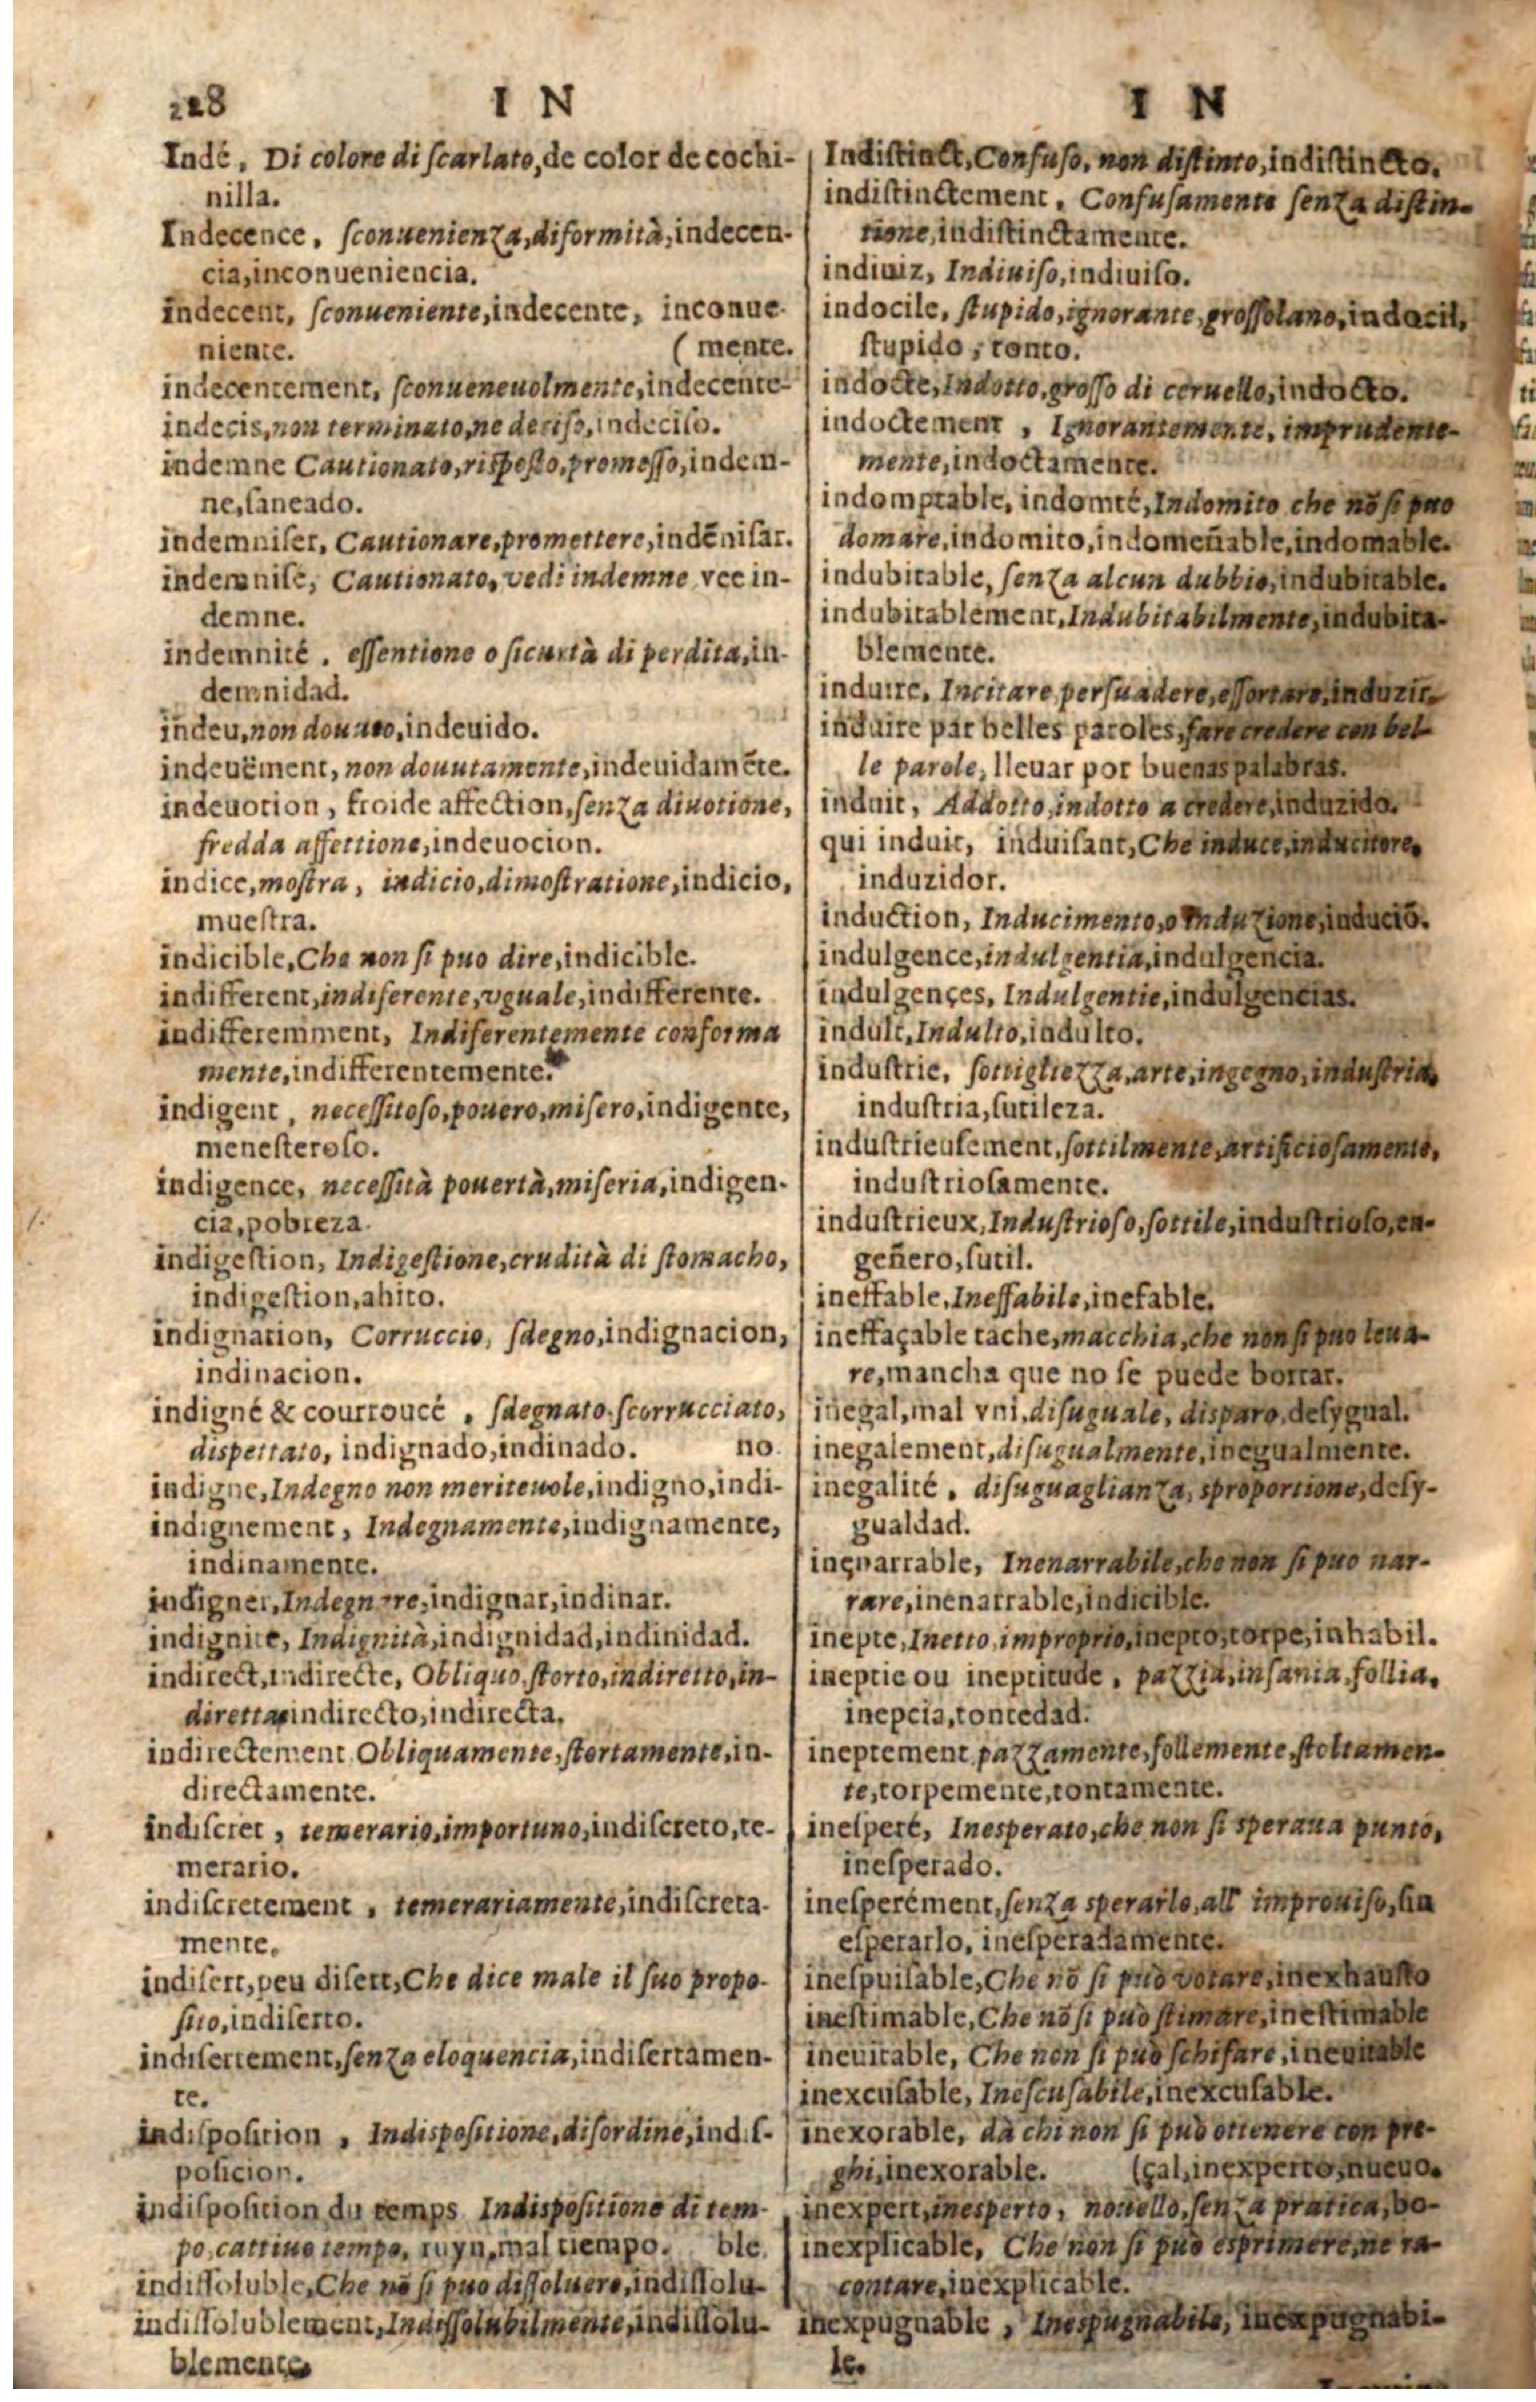 228 I N
Indé, Di colore di ſcarlato,de color de cochi-
nilla.
Indecence, ſconuenienza,diformità,indecen-
cia,inconueniencia.
indecent, ſconueniente,indecente, inconue-
niente. (mente.
indecentement, ſconueneuolmente,indecente-
indecis,non terminato,ne deciſo,indeciſo.
indemne Cautionato,riſpeſto,promeſſo,indem-
ne,ſaneado.
indemniſer, Cautionare,promettere,indēniſar.
indemniſé, Cautionato, vedi indemne vee in-
demne.
indemnité, eſſentione o ſicurtà di perdita,in-
demnidad.
indeu,non douuto,indeuido.
indeuëment, non douutamente,indeuidamēte.
indeuotion, froide affection,ſenza diuotione,
fredda affettione,indeuocion.
indice,moſtra, indicio,dimoſtratione,indicio,
mueſtra.
indicible,Che non ſi puo dire,indicible.
indifferent,indiferente,vguale,indifferente.
indifferemment, Indiferentemente conforma
mente,indifferentemente.
indigent, neceſſitoso,pouero,miſero,indigente,
meneſteroſo.
indigence, neceſſità pouertà,miſeria,indigen-
cia,pobreza.
indigeſtion, Indigeſtione,crudità di ſtomacho,
indigeſtion,ahito.
indignation, Corruccio, ſdegno,indignacion,
indinacion.
indigné & courroucé, ſdegnato,ſcorrucciato,
diſpettato, indignado,indinado. no.
indigne,Indegno non meriteuole,indigno,indi-
indignement, Indegnamente,indignamente,
indinamente.
indigner,Indegnare,indignar,indinar.
indignité, Indignità,indignidad,indinidad.
indirect,indirecte, Obliquo,ſtorto,indiretto,in-
diretta,indirecto,indirecta.
indirectement Obliquamente,ſtortamente,in-
directamente.
indiſcret, temerario,importuno,indiſcreto,te-
merario.
indiſcretement, temerariamente,indiſcreta-
mente.
indiſert,peu diſert,Che dice male il ſuo propo-
ſito,indiſerto.
indiſertement,ſenza eloquencia,indiſertamen-
te.
indiſpoſition, Indiſpoſitione,diſordine,indiſ-
poſicion.
indiſpoſition du temps Indiſpoſitione di tem-
po,cattiuo tempo, ruyn,mal tiempo. ble.
indiſſoluble,Che nõ ſi puo diſſoluere,indiſſolu-
indiſſolublement,Indiſſolubilmente,indiſſolu-
blemente.
I N
Indiſtinct,Confuſo, non diſtinto,indiſtincto.
indiſtinctement, Confuſamente ſenza diſtin-
tione,indiſtinctamente.
indiuiz, Indiuiſo,indiuiſo.
indocile, ſtupido,ignorante,groſſolano,indocil,
ſtupido, tonto.
indocte,Indotto,groſſo di ceruello,indocto.
indoctement, Ignorantemente, imprudente-
mente,indoctamente.
indomptable, indomté,Indomito che nõ ſi puo
domare,indomito,indomeñable,indomable.
indubitable, ſenza alcun dubbio,indubitable.
indubitablement,Indubitabilmente,indubita-
blemente.
induire, Incitare perſuadere,eſſortare,induzir.
induire par belles paroles,fare credere con bel-
le parole, lleuar por buenas palabras.
induit, Addotto,indotto a credere,induzido.
qui induit, induiſant,Che induce,inducitore,
induzidor.
induction, Inducimento,o Induzione,induciō.
indulgence,indulgentia,indulgencia.
indulgençes, Indulgentie,indulgencias.
indult,Indulto,indulto.
induſtrie, ſottigliezza,arte,ingegno,induſtria,
induſtria,ſutileza.
induſtrieuſement,ſottilmente,artificioſamente,
induſtrioſamente.
induſtrieux,Induſtrioſo,ſottile,induſtrioſo,en-
geñero,ſutil.
ineffable,Ineffabile,inefable.
ineffaçable tache,macchia,che non ſi puo leua-
re,mancha que no ſe puede borrar.
inegal,mal vni,diſuguale, diſparo,deſygual.
inegalement,diſugualmente,inegualmente.
inegalité, diſuguaglianza, ſproportione,deſy-
gualdad.
inenarrable, Inenarrabile,che non ſi puo nar-
rare,inenarrable,indicible.
inepte,Inetto,improprio,inepto,torpe,inhabil.
ineptie ou ineptitude, pazzia,inſania,follia,
inepcia,tontedad.
ineptement pazzamente,follemente,ſtoltamen-
te,torpemente,tontamente.
ineſperé, Ineſperato,che non ſi ſperaua punto,
ineſperado.
ineſperément,ſenza ſperarlo,all' improuiſo,ſin
eſperarlo, ineſperadamente.
ineſpuiſable,Che nõ ſi può votare,inexhauſto
ineſtimable,Che nõ ſi può ſtimare,ineſtimable
ineuitable, Che non ſi può ſchifare,ineuitable
inexcuſable, Ineſcuſabile,inexcuſable.
inexorable, dà chi non ſi può ottenere con pre-
ghi,inexorable. (çal,inexperto,nueuo.
inexpert,ineſperto, nouello,ſenza pratica,bo-
inexplicable, Che non ſi può eſprimere,ne ra-
contare,inexplicable.
inexpugnable, Ineſpugnabile, inexpugnabi-
le.